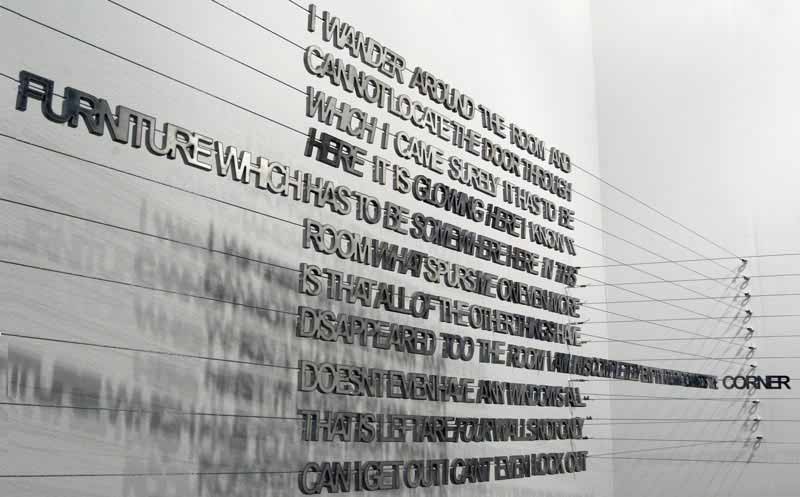 I WANDER AROUND THE ROOM AND
CANNOT LOCATE THE DOOR THROUGH
WHICH I CAME SURELY IT HAS TO BE
HERE IT IS GLOWING HERE I KNOW IT
FURNITURE WHICH HAS TO BE SOMEWHERE HERE IN THIS
ROOM WHAT SPURS ME ON EVEN MORE
IS THAT ALL OF THE OTHER THINGS HAVE
DISAPPEARED TOO THE ROOM CORNER
DOESNT EVEN HAVE ANY WINDOWS ALL
THAT IS LEFT ARE FOUR WALLS NOT ONLY
CAN I GET OUT I CANT EVEN LOOK OUT